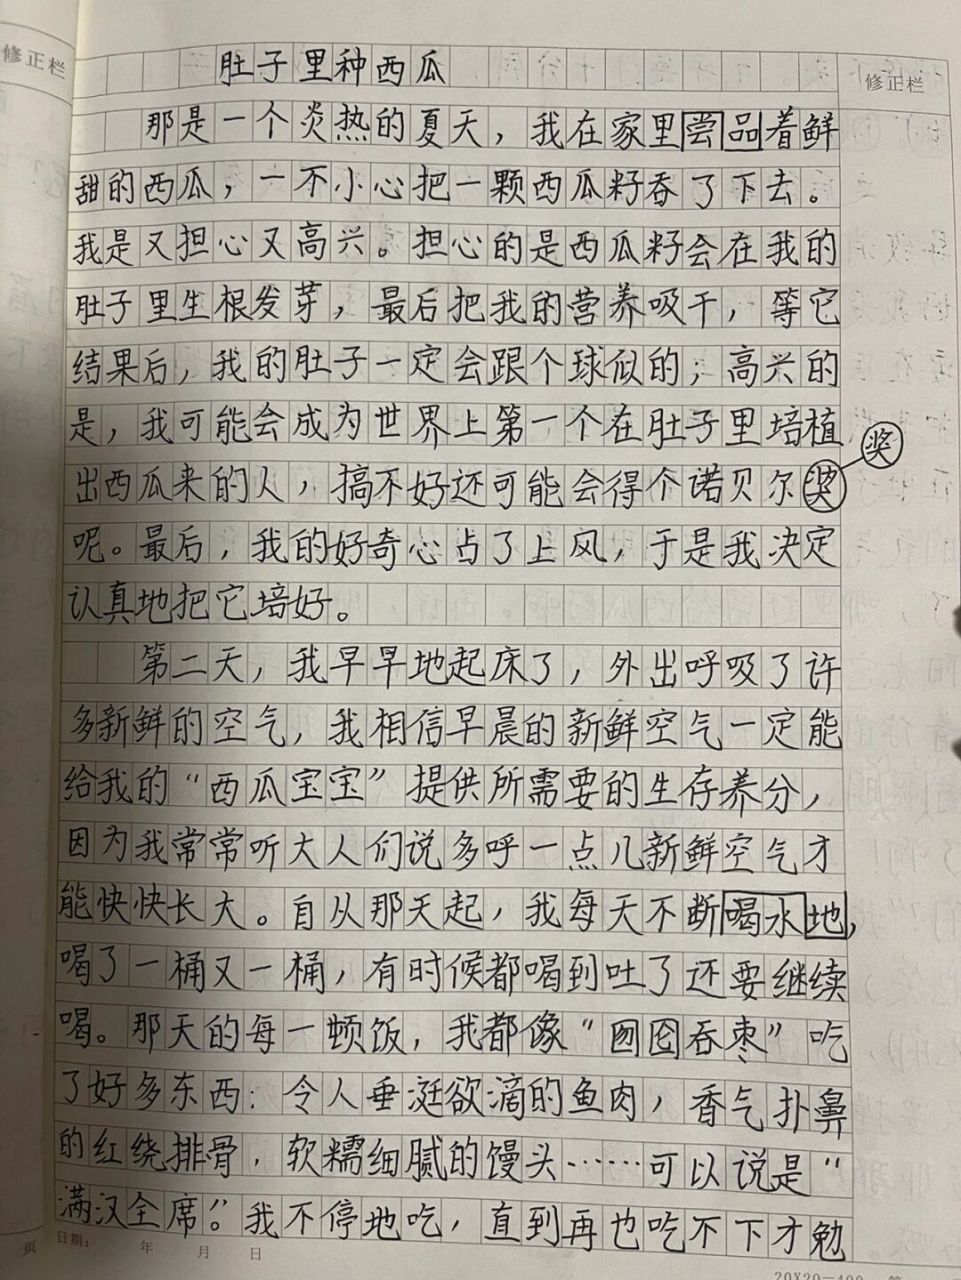 修正栏
肚子里种西瓜
修正栏
那是一个炎热的夏天，我在家里尝品着鲜
甜的西瓜，一不小心把一颗西瓜籽吞了下去。
我是又担心又高兴。担心的是西瓜籽会在我的
肚子里生根发芽，最后把我的营养吸干，等它
结果后，我的肚子一定会跟个球似的；高兴的
是，我可能会成为世界上第一个在肚子里培植
奖
出西瓜来的人，搞不好还可能会得个诺贝尔奖
呢。最后，我的好奇心占了上风，于是我决定
认真地把它培好。
第二天，我早早地起床了，外出呼吸了许
多新鲜的空气，我相信早晨的新鲜空气一定能
给我的“西瓜宝宝”提供所需要的生存养分，
因为我常常听大人们说多呼一点儿新鲜空气才
能快快长大。自从那天起，我每天不断喝水地，
喝了一桶又一桶，有时候都喝到吐了还要继续
喝。那天的每一顿饭，我都像“囫囵吞枣”吃
了好多东西：令人垂涎欲滴的鱼肉，香气扑鼻
的红绕排骨，软糯细腻的馒头……可以说是“
满汉全席”。我不停地吃，直到再也吃不下才勉
页
日期：　年　月　日
20X20=400